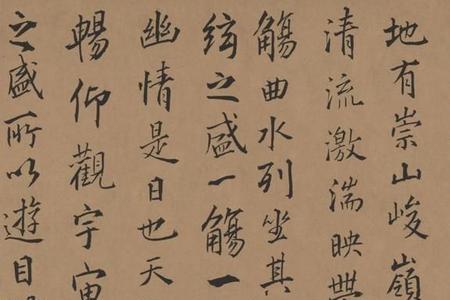 地有崇山峻嶺
清流激湍映
觴曲水列坐其
絃之盛一觴一
幽情是日也天
暢仰觀宇宙
之盛所以遊目